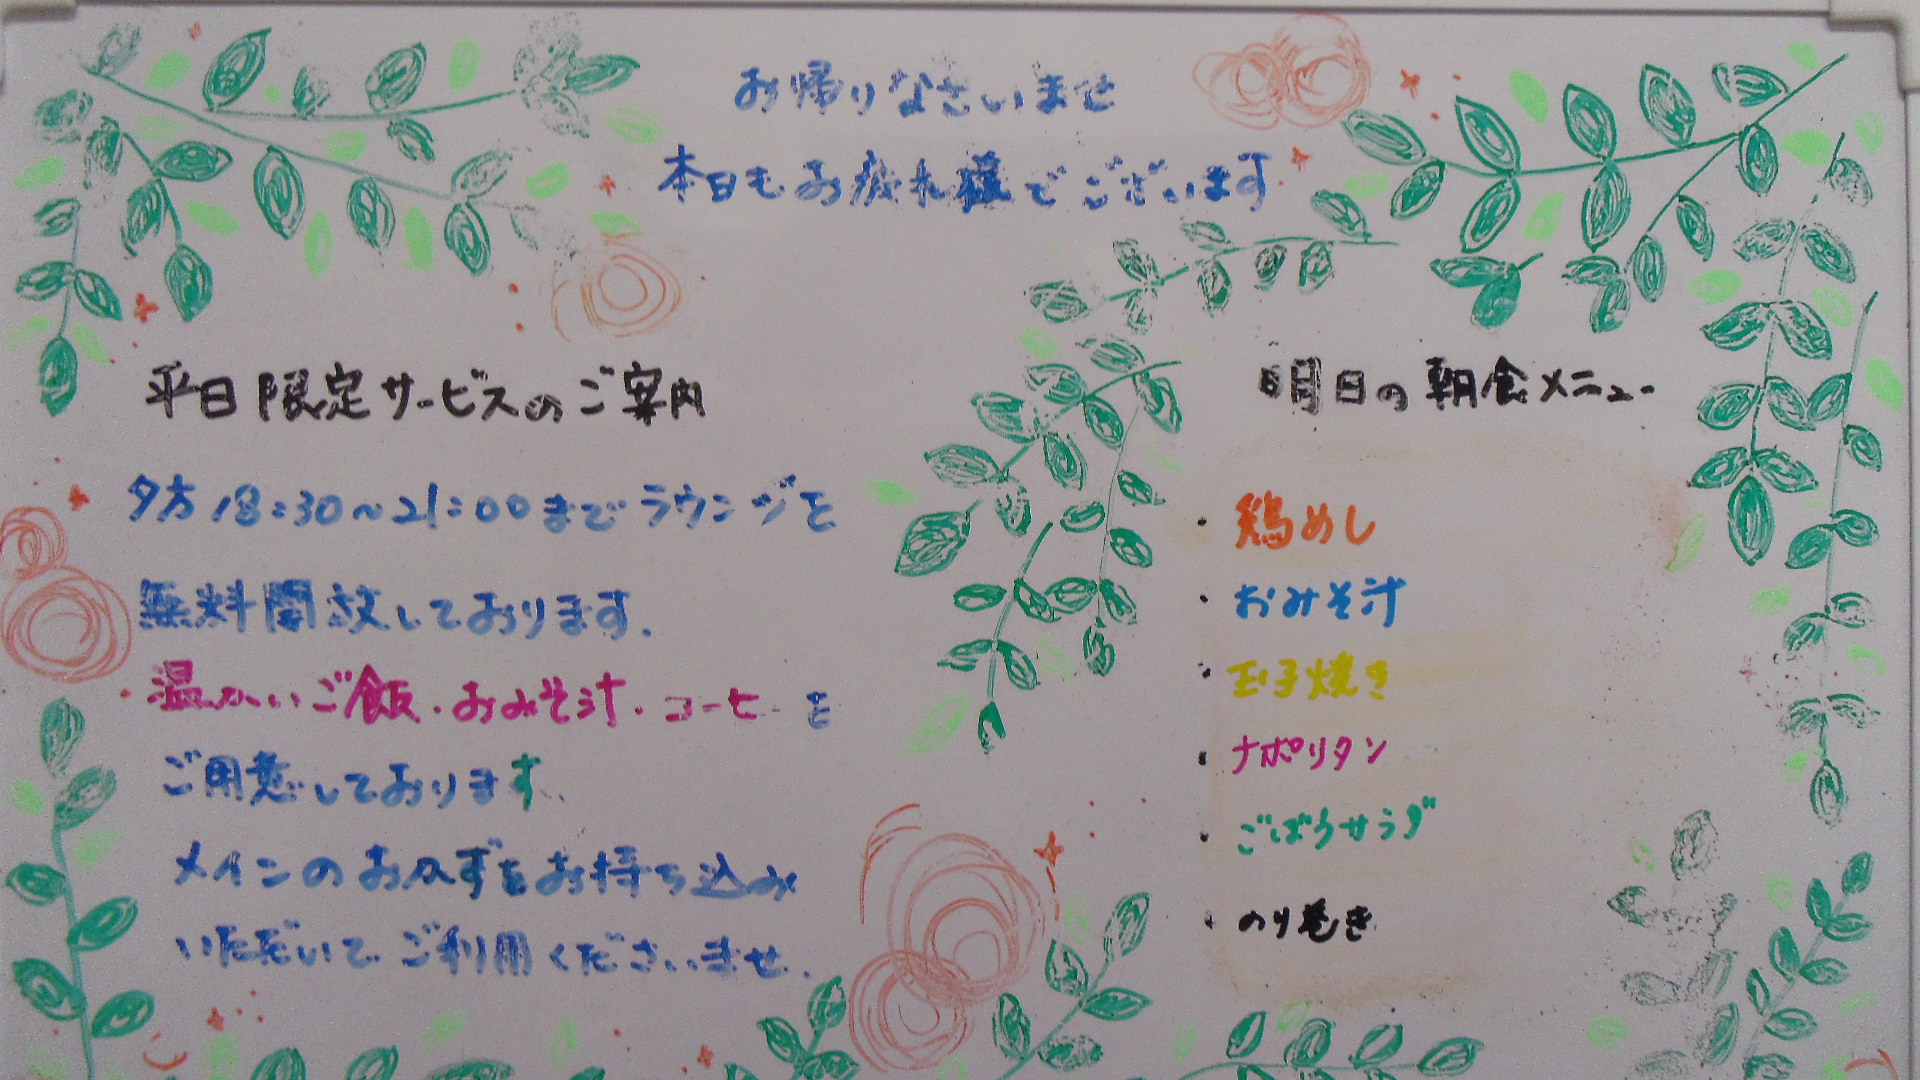 お帰りなさいませ
本日もお疲れ様でございます
平日限定サービスのご案内
夕方18:30～21:00までラウンジを
無料開放しております.
温かいご飯・おみそ汁・コーヒーを
ご用意しております、
メインのおかずをお持ち込み
いただいてご利用くださいませ.
明日の朝食メニュー
・鶏めし
・おみそ汁
・玉子焼き
・ナポリタン
・ごぼうサラダ
・のり巻き